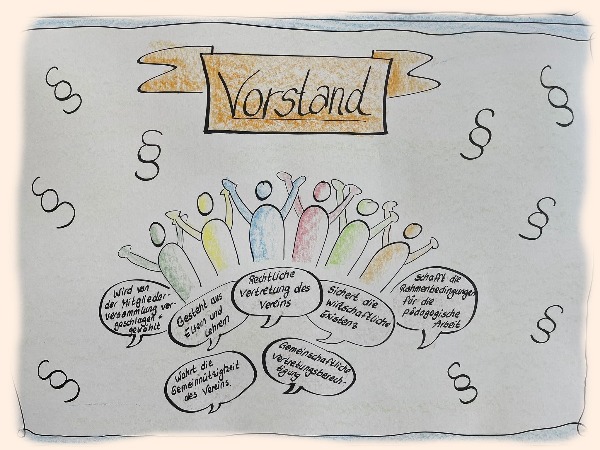 Vorstand
§
§
§
§
§
§
§
§
§
§
Wird von
der Mitglieder-
versammlung vor-
geschlagen +
gewählt
Besteht aus
Eltern und
Lehrern
Rechtliche
Vertretung des
Vereins
Sichert die
wirtschaftliche
Existenz
Schafft die
Rahmenbedingungen
für die
pädagogische
Arbeit
Wahrt die
Gemeinnützigkeit
des Vereins
Gemeinschaftliche
Vertretungsberech-
tigung